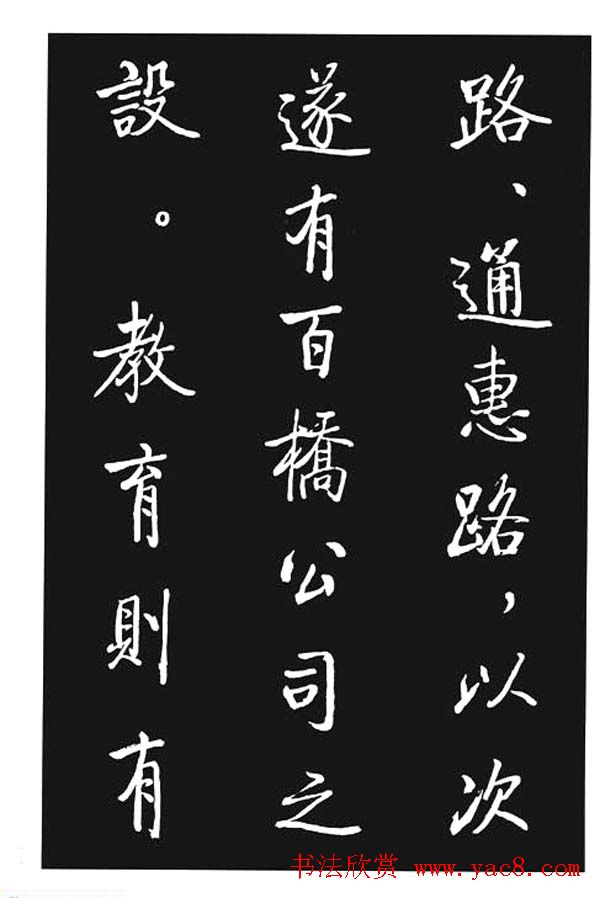 路、通惠路，以次
遂有百橋公司之
設。教育則有
书法欣赏 www.yac8.com